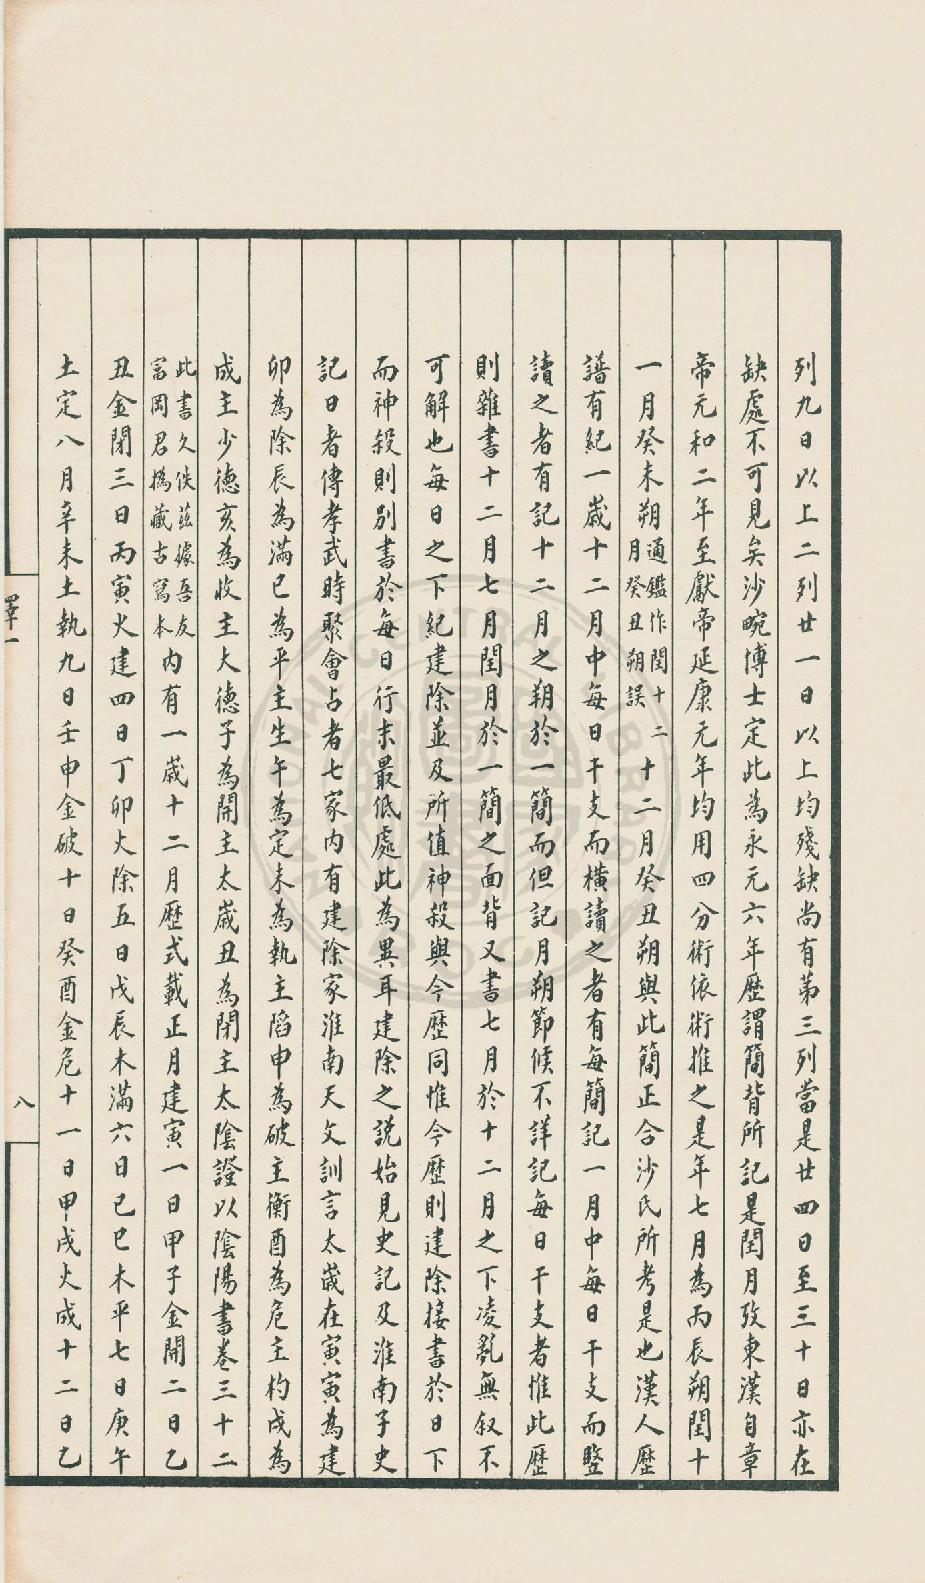 列九日以上二列廿一日以上均殘缺尚有第三列當是廿四日至三十日亦在
缺處不可見矣沙畹博士定此為永元六年歷謂簡背所記是閏月攷東漢自章
帝元和二年至獻帝延康元年均用四分術依術推之是年七月為丙辰朔閏十
一月癸未朔通鑑作閏十二月癸丑朔誤十二月癸丑朔與此簡正合沙氏所考是也漢人歷
譜有紀一歲十二月中每日干支而橫讀之者有每簡記一月中每日干支而豎
讀之者有記十二月之朔於一簡而但記月朔節候不詳記每日干支者惟此歷
則雜書十二月七月閏月於一簡之面背又書七月於十二月之下凌亂無叙不
可解也每日之下紀建除並及所值神殺與今歷同惟今歷則建除接書於日下
而神殺則別書於每日行末最低處此為異耳建除之說始見史記及淮南子史
記日者傳孝武時聚會占者七家內有建除家淮南天文訓言太歲在寅寅為建
卯為除辰為滿巳為平主生午為定未為執主陷申為破主衡酉為危主杓戌為
成主少德亥為收主大德子為開主太歲丑為閉主太陰證以陰陽書卷三十二
此書久佚茲據吾友富岡君撝藏古寫本內有一歲十二月歷式載正月建寅一日甲子金開二日乙
丑金閉三日丙寅火建四日丁卯火除五日戊辰木滿六日己巳木平七日庚午
土定八月辛未土執九日壬申金破十日癸酉金危十一日甲戌火成十二日乙
八